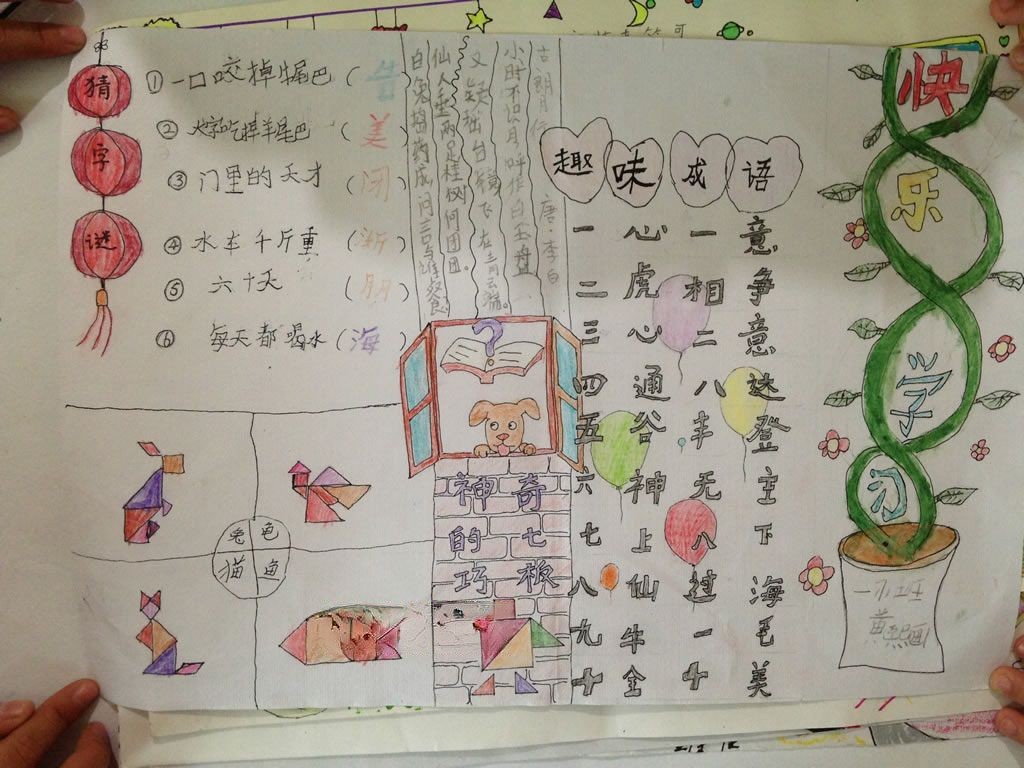 猜字谜
① 一口咬掉牛尾巴（告）
② 吃掉羊尾巴（美）
③ 门里的天才（闭）
④ 水车千斤重（渐）
⑤ 六十天（朋）
⑥ 每天都喝水（海）
古朗月行 唐·李白
小时不识月，呼作白玉盘
又疑瑶台镜，飞在青云端。
仙人垂两足，桂树何团团。
白兔捣药成，问言与谁餐。
趣味成语
一心一意
二虎相争
三心二意
四通八达
五谷丰登
六神无主
七上八下
八仙过海
九牛一毛
十全十美
快乐学习
兔
猫 鱼
神奇
的七
巧板
?